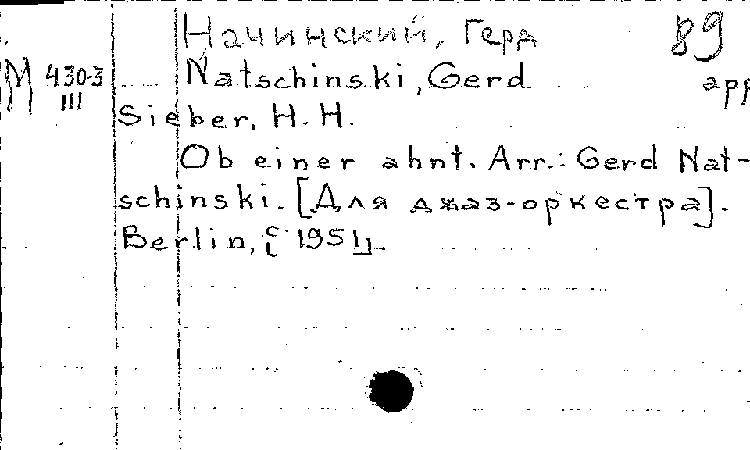 Начинский, Герд 89
М 430-3 Natschinski, Gerd арр
III
Sieber, H. H.
Ob einer ahnt. Arr.: Gerd Nat-
schinski. [Для джаз-оркестра].
Berlin, [c 1951].